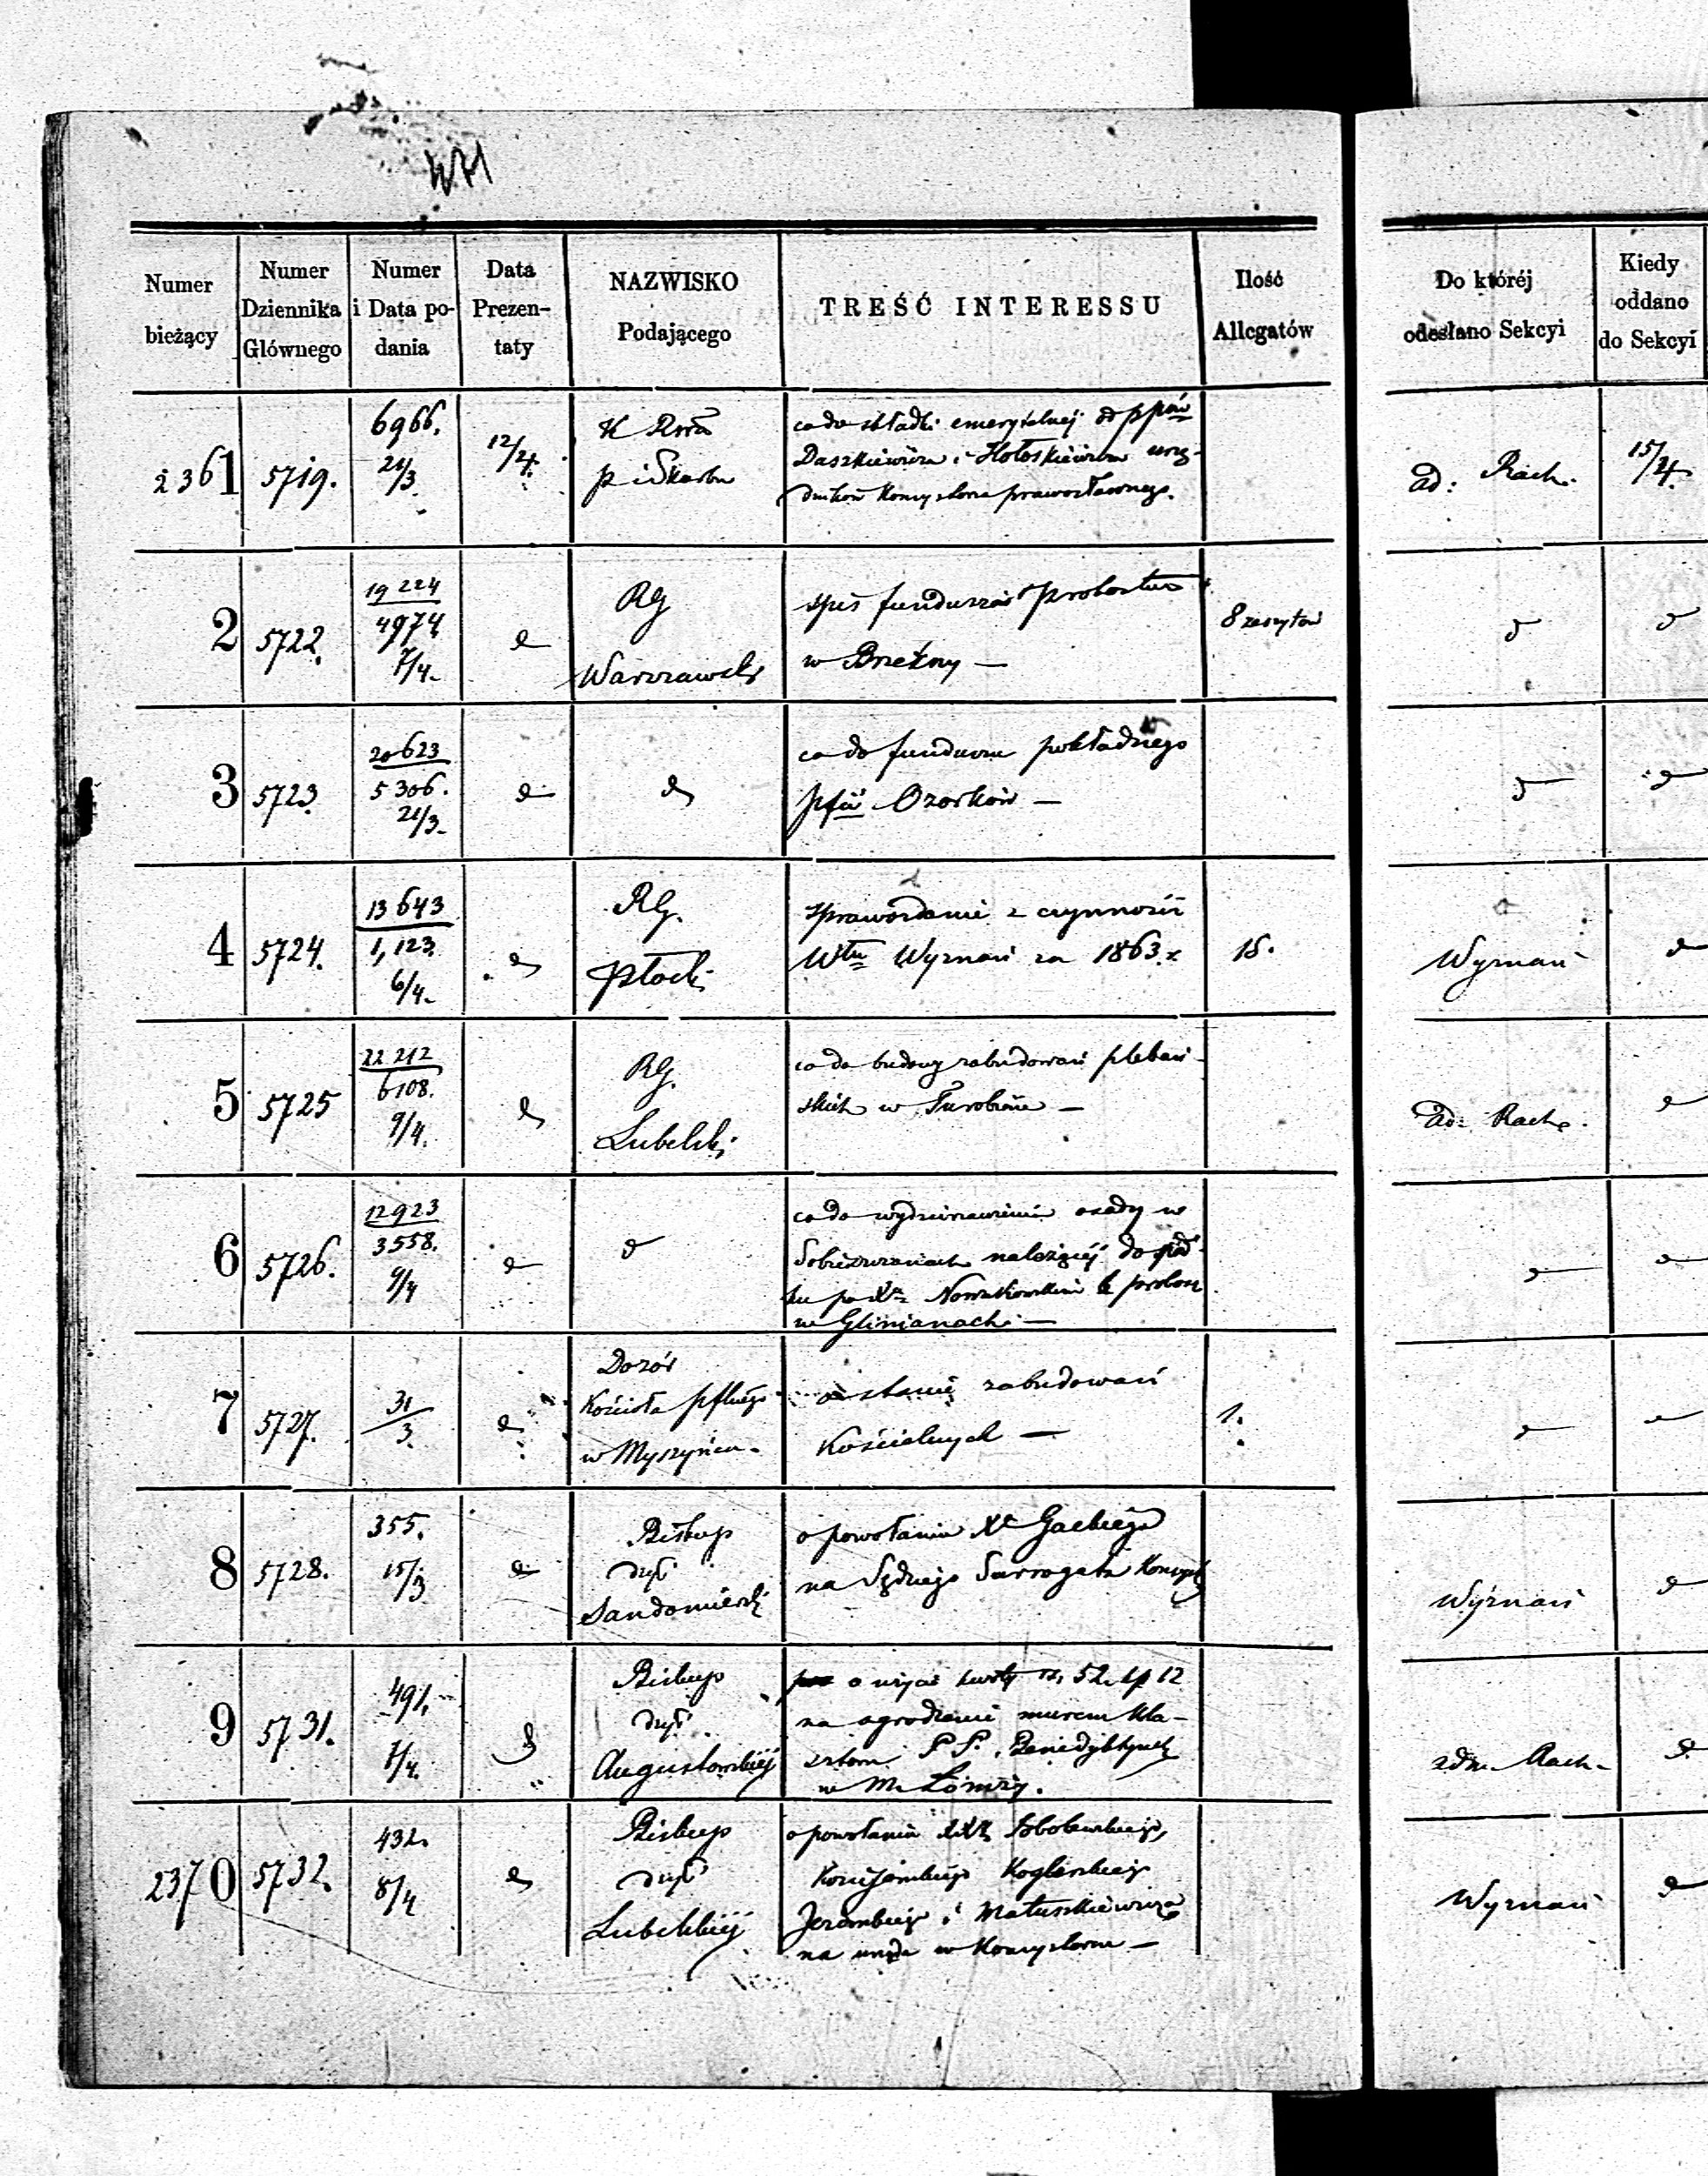 471
Numer bieżący
Numer Dziennika Głównego
Numer i Data podania
Data Prezentaty
NAZWISKO Podającego
TREŚĆ INTERESSU
Ilość Allegatów
Do któréj odesłano Sekcyi
Kiedy oddano do Sekcyi
2361
5719.
6966.
21/3
12/4
K Rzą
P i Skarbu
co do składki emerytalnej od ppów
Daszkiewicza i Hołoskiewicza urzę-
dników Konsystorza prawosławnego.
ad: Rach.
15/4
2
5722.
19224
4974
7/4.
d
RG
Warszawski
spis funduszów probostwa
w Brzeźny —
8 zeszytów
d
d
3
5723.
20623
5306.
21/3.
d
d
co do funduszu pokładnego
pfii Ozorków —
d
d
4
5724.
13643
1,123.
6/4.
d
RG.
Płocki
sprawozdanie z czynności
Włu Wyznań za 1863.r.
15.
Wyznań
d
5
5725
22212
6108.
9/4.
d
RG.
Lubelski
co do budowy zabudowań plebań-
skich w Turobinie —
ad: Rach.
d
6
5726.
12923
3558.
9/4
d
d
co do wydzierżawienia osady w
Sobieszczanach należącej do spad-
ku po Xu Nowakowskim b. probosz
w Glinianach —
d
d
7
5727.
31/3.
d
Dozór
Kościoła pflnego
w Myszyńcu.
o stanie zabudowań
Kościelnych —
1.
d
d
8
5728.
355.
15/3
d
Biskup
dyc
Sandomierski
o powołaniu Xa Gackiego
na Sędziego Surrogata Konsyst
Wyznań
d
9
5731.
491.
7/4.
d
Biskup
dyc.
Augustowskiej
o użycie kwoty rs. 52. kp 12
na ogrodzenie murem kla-
sztoru P P. Benedyktynek
w M. Łomży.
adm. Rach.
d
2370
5732.
432.
8/4
d
Biskup
dyc
Lubelskiej
o powołaniu XX Sobolewskiego,
Koglarskiego
Jezierskiego i Matuszkiewicza
na urzęda w Konsystorzu —
Wyznań
d